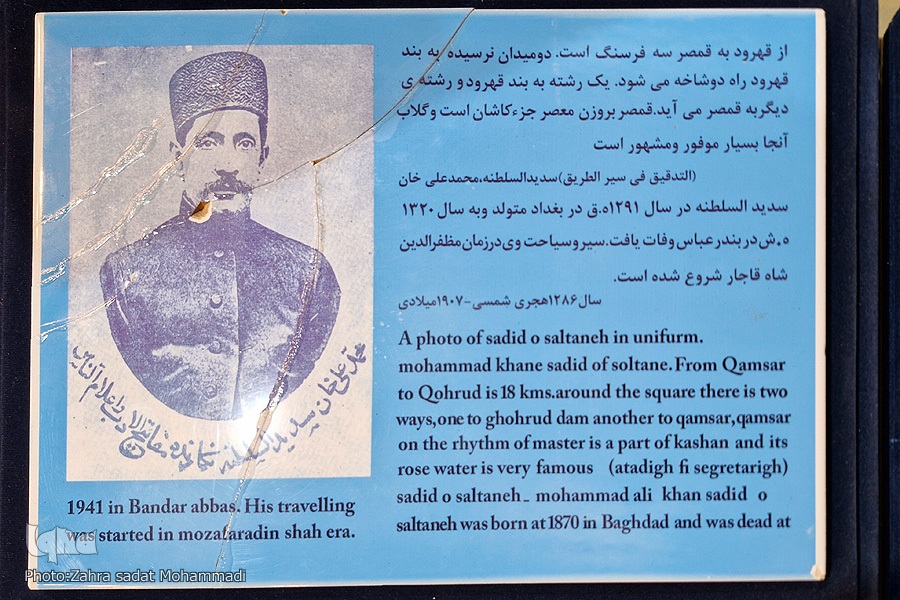 از قهرود به قمصر سه فرسنگ است. دومیدان نرسیده به بند
قهرود راه دوشاخه می شود. یک رشته به بند قهرود و رشته ی
دیگر به قمصر می آید.قمصر بروزن معصر جزءکاشان است وگلاب
آنجا بسیار موفور ومشهور است
(التدقیق فی سیر الطریق)سدیدالسلطنه،محمدعلی خان
سدید السلطنه در سال ۱۲۹۱ه.ق در بغداد متولد وبه سال ۱۳۲۰
ه.ش در بندر عباس وفات یافت.سیر وسیاحت وی درزمان مظفرالدین
شاه قاجار شروع شده است.
سال۱۲۸۶هجری شمسی-۱۹۰۷میلادی
A photo of sadid o saltaneh in unifurm.
mohammad khane sadid of soltane. From Qamsar
to Qohrud is 18 kms.around the square there is two
ways,one to ghohrud dam another to qamsar,qamsar
on the rhythm of master is a part of kashan and its
rose water is very famous (atadigh fi segretarigh)
sadid o saltaneh - mohammad ali khan sadid o
saltaneh was born at 1870 in Baghdad and was dead at
1941 in Bandar abbas. His travelling
was started in mozafaradin shah era.
محمد علی خان سدید السلطنه
iqna
Photo:Zahra sadat Mohammadi